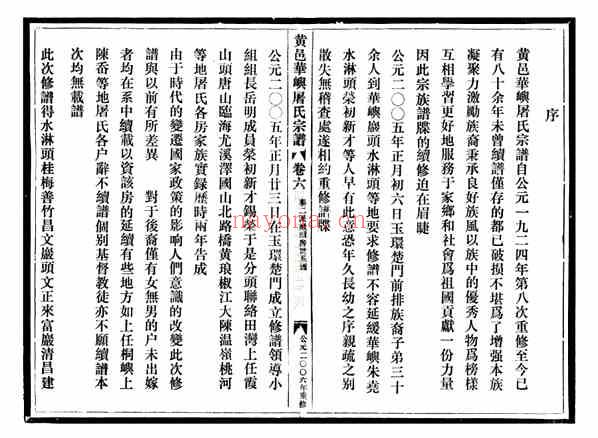 序
黄邑華嶼屠氏宗譜自公元一九二四年第八次重修至今已
有八十余年未曾續譜僅存的都已破損不堪爲了增强本族
凝聚力激勵族裔秉承良好族風以族中的優秀人物爲榜樣
互相學習更好地服務于家鄉和社會爲祖國貢獻一份力量
因此宗族譜牒的續修迫在眉睫
公元二〇〇五年正月初六日玉環楚門前排族裔子弟三十
余人到華嶼巖頭水淋頭等地要求修譜不容延緩華嶼朱堯
水淋頭榮初新才等人早有此意恐年久長幼之序親疏之别
散失無稽查處遂相約重修譜牒
黄邑華嶼屠氏宗譜
卷六
公元二〇〇六年重修
公元二〇〇五年正月廿三日在玉環楚門成立修譜領導小
組組長岳明成員榮初新才錫琴于是分頭聯絡田灣上任霞
山頭唐山臨海尤溪澤國山北路橋黄琅椒江大陳温嶺桃河
等地屠氏各房家族實録歷時兩年告成
由于時代的變遷國家政策的影响人們意識的改變此次修
譜與以前有所差異 對于後裔僅有女無男的户未出嫁
者均在系中續載以資該房的延續有些地方如上任桐嶼上
陳岙等地屠氏各户辭不續譜個别基督教徒亦不願續譜本
次均無載譜
此次修譜得水淋頭桂梅善竹昌文巖頭文正來富嚴清昌建
nayona.cn